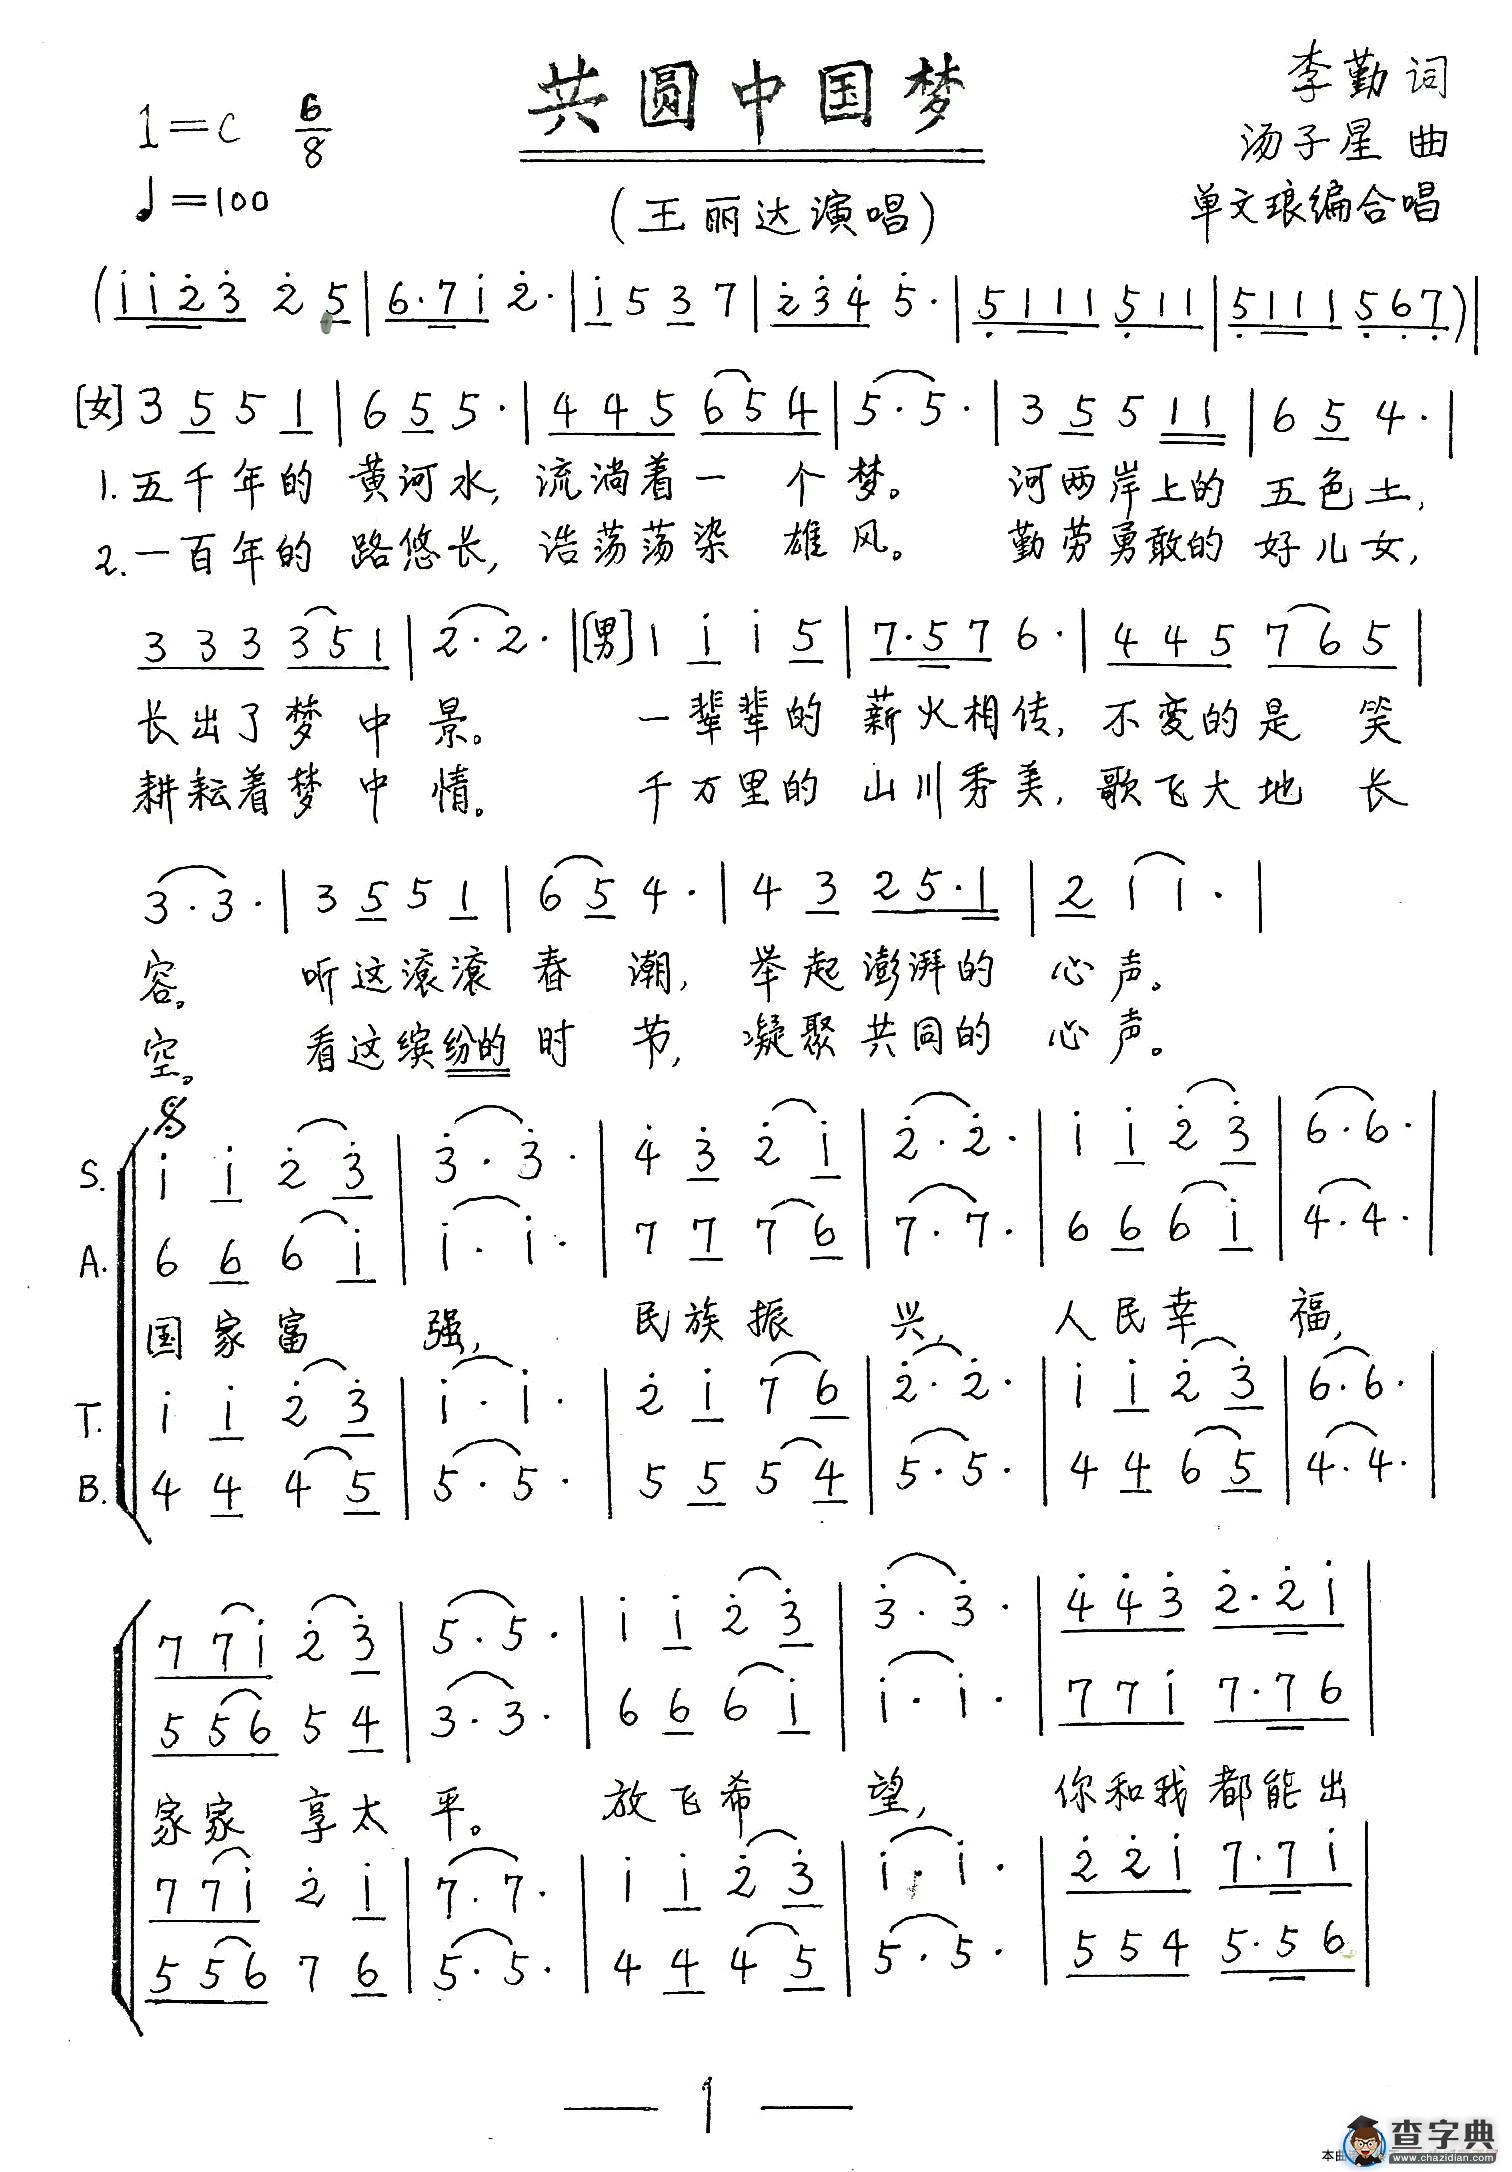 共圆中国梦
李勤词
1=C 6/8
汤子星 曲
♩=100
(王丽达演唱)
单文琅编合唱
(i i 2 3 2 5 | 6·7 i 2· | i 5 3 7 | 2 3 4 5· | 5 1 1 1 5 1 1 | 5 1 1 1 5 6 7)|
[女] 3 5 5 1 | 6 5 5· | 4 4 5 6 5 4 | 5·5· | 3 5 5 1 1 | 6 5 4· |
1.五千年的 黄河水,流淌着一 个 梦。 河两岸上的 五色土,
2.一百年的 路悠长,浩荡荡染 雄 风。 勤劳勇敢的 好儿女,
3 3 3 3 5 1 | 2·2· |[男] 1 i i 5 | 7·5 7 6· | 4 4 5 7 6 5 |
长出了梦 中 景。 一辈辈的 薪火相传,不变的是 笑
耕耘着梦 中 情。 千万里的 山川秀美,歌飞大地 长
3·3· | 3 5 5 1 | 6 5 4· | 4 3 2 5·1 | 2 1 1· |
容。 听这滚滚 春 潮, 举起澎湃的 心声。
空。 看这缤纷的 时 节, 凝聚共同的 心声。
S. i i 2 3 | 3·3· | 4 3 2 i | 2·2· | i i 2 3 | 6·6· |
A. 6 6 6 i | i·i· | 7 7 7 6 | 7·7· | 6 6 6 i | 4·4· |
国家富 强, 民族振 兴, 人民幸 福,
T. i i 2 3 | i·i· | 2 i 7 6 | 2·2· | i i 2 3 | 6·6· |
B. 4 4 4 5 | 5·5· | 5 5 5 4 | 5·5· | 4 4 6 5 | 4·4· |
7 7 i 2 3 | 5·5· | i i 2 3 | 3·3· | 4 4 3 2·2 i |
5 5 6 5 4 | 3·3· | 6 6 6 i | i·i· | 7 7 i 7·7 6 |
家家 享太 平。 放飞希 望, 你和我都能出
7 7 i 2 i | 7·7· | i i 2 3 | i·i· | 2 2 i 7·7 i |
5 5 6 7 6 | 5·5· | 4 4 4 5 | 5·5· | 5 5 4 5·5 6 |
— 1 —
查字典
www.chazidian.com
本曲